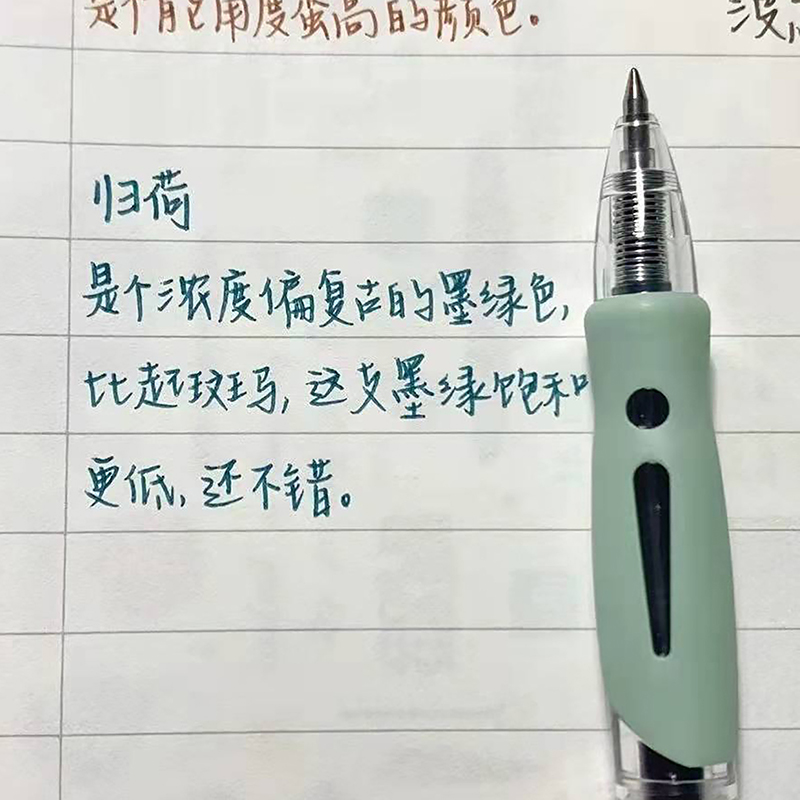 是个饱和度蛮高的颜色。
没
归荷
是个浓度偏复古的墨绿色,
比起斑马,这支墨绿饱和
更低,还不错。